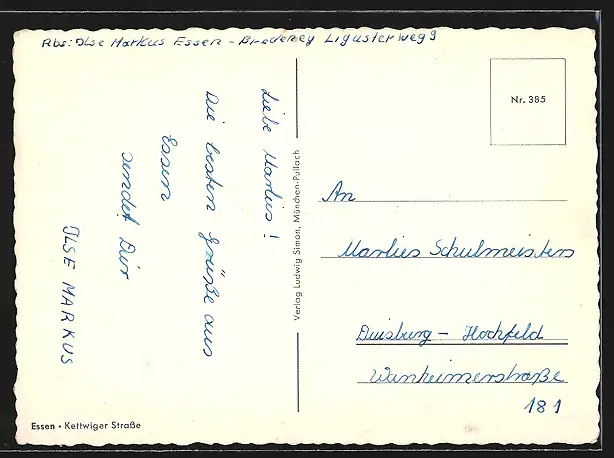 Abs: Ilse Markus Essen - Bredeney Ligusterweg 9
Liebe Marlies!
Die besten Grüße aus
Essen
sendet Dir
ILSE MARKUS
Essen • Kettwiger Straße
Verlag Ludwig Simon, München-Pullach
Nr. 385
An
Marlies Schulmeisters
Duisburg - Hochfeld
Wanheimerstraße
181